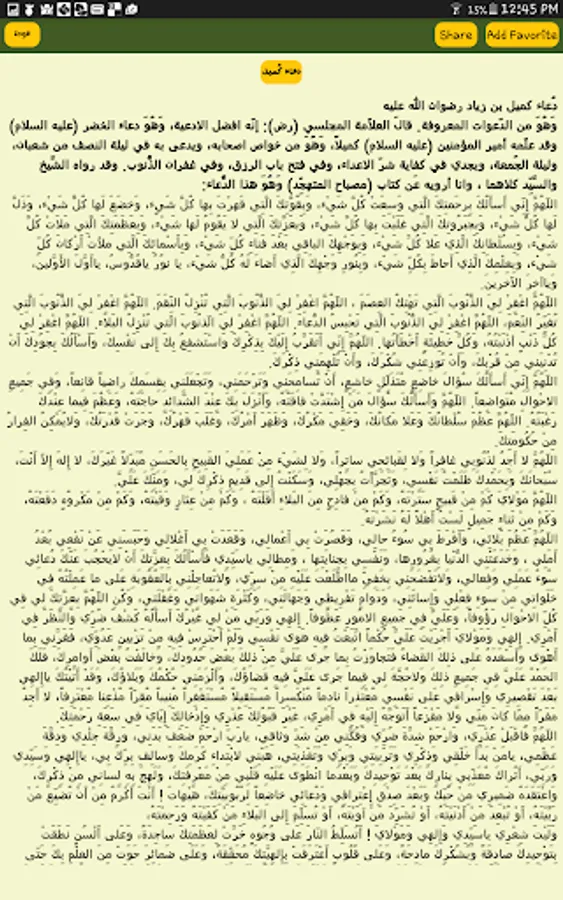 15% 12:45 PM
عودة
Share
Add Favorite
دعاء كميل
دُعاء كميل بن زياد رضوان الله عليه
وَهُوَ من الدّعوات المعروفة. قالَ العلامة المجلسي (رض): إنّه افضل الادعية، وَهُوَ دعاء الخضر (عليه السلام)
وقد علّمه أمير المؤمنين (عليه السلام) كميلاً، وَهُو من خواصّ اصحابه، ويدعى به في ليلة النصف من شعبان،
وليلة الجُمعة، ويجدي في كفاية شرّ الاعداء، وفي فتح باب الرزق، وفي غفران الذُّنوب. وقد رواه الشَّيخ
والسَّيِّد كلاهما ، وانا أرويه عن كتاب (مصباح المتهجّد) وَهُوَ هذا الدُّعاء:
اللَّهُمَّ إنِّي أسألُكَ برحمَتِكَ الَّتي وسِعَتْ كُلَّ شَيء، وبقُوَّتِكَ الَّتي قهَرْتَ بها كُلَّ شَيء، وخضَعَ لها كُلُّ شَيء، وذَلَّ
لها كُلُّ شَيء، وبجبروتِكَ الَّتي غلَبْتَ بها كُلَّ شَيء، وبعزَّتِكَ الَّتي لا يقومُ لها شَيء، وبعظَمَتِكَ الَّتي ملأت كُلَّ
شَيء، وبسلطانِكَ الَّذي علا كُلَّ شَيء، وبوجهِكَ الباقي بعدَ فناء كُلِّ شَيء، وبأسمائِكَ الَّتي ملأت أركانَ كُلِّ
شَيء، وبعلمِكَ الَّذي أحاطَ بكُلِّ شَيء، وبنورِ وجهِكَ الَّذي أضاءَ لهُ كُلُّ شَيء، يا نورُ ياقُدُّوسُ، ياأوَّلَ الأوَّلينَ،
وياآخرَ الآخرين.
اللَّهُمَّ اغفر ليَ الذُّنوبَ الَّتي تهتِكُ العِصَمَ ، اللَّهُمَّ اغفر ليَ الذُّنوبَ الَّتي تُنزِلُ النِّقَمَ. اللَّهُمَّ اغفر ليَ الذُّنوبَ الَّتي
تُغيِّرُ النِّعَمَ، اللَّهُمَّ اغفر لي الذُّنوبَ الَّتي تحبِسُ الدعاءَ. اللَّهُمَّ اغفر ليَ الذُّنوبَ الَّتي تُنزِلُ البلاءَ. اللَّهُمَّ اغفر لي
كُلَّ ذنبٍ أذنبتُهُ، وكُلَّ خطيئةٍ أخطأتُها. اللَّهُمَّ إنِّي أتقرَّبُ إليكَ بذكرِكَ واستشفعُ بكَ إلى نفسِكَ، وأسألُكَ بجودِكَ أنْ
تُدنيَني من قُربِكَ، وأنْ تُوزِعَني شُكرَكَ، وأنْ تُلهِمَني ذكرَكَ.
اللَّهُمَّ إنِّي أسألُكَ سؤالَ خاضعٍ متذلِّلٍ خاشعٍ، أنْ تُسامحَني وترحمَني، وتجعلَني بقسمِكَ راضياً قانعاً، وفي جميعِ
الاحوالِ متواضعاً. اللَّهُمَّ وأسألُكَ سؤالَ من إشتدَّت فاقتُهُ، وأنزلَ بكَ عندَ الشَّدائدِ حاجتَهُ، وعظُمَ فيما عندَكَ
رغبتُهُ. اللَّهُمَّ عظُمَ سلطانُكَ وعلا مكانُكَ، وخفيَ مكرُكَ، وظهرَ أمرُكَ، وغلبَ قهرُكَ، وجرتْ قدرتُكَ، ولايمكنُ الفرارُ
من حكومتِكَ.
اللَّهُمَّ لا أجدُ لذنوبي غافراً ولا لقبائحي ساتراً، ولا لشيء من عمليَ القبيحِ بالحسنِ مُبدِّلاً غيرَكَ، لا إلهَ إلاَّ أنتَ،
سبحانَكَ وبحمدِكَ ظلمتُ نفسي، وتجرَّأتُ بجهلي، وسكنتُ إلى قديمِ ذكرِكَ لي، ومنِّكَ عليَّ.
اللَّهُمَّ مولايَ كم من قبيحٍ سترتَهُ، وكم من فادحٍ من البلاءِ أقلتَهُ ، وكم من عثارٍ وقيتَهُ، وكم من مكروهٍ دفعتَهُ،
وكم من ثناءٍ جميلٍ لستُ أهلاً لهُ نشرتَهُ.
اللَّهُمَّ عظُمَ بلائي، وأفرطَ بي سوءُ حالي، وقصُرتْ بي أعمالي، وقعدتْ بي أغلالي وحبسني عن نفعي بُعدُ
أملي ، وخدعتني الدُّنيا بغرورِها، ونفسي بجنايتِها ، ومطالي ياسيِّدي فأسألُكَ بعزَّتِكَ أنْ لايحجُبَ عنكَ دعائي
سوءُ عملي وفعالي، ولاتفضحني بخفيِّ مااطَّلعتَ عليهِ من سرِّي، ولاتعاجلني بالعقوبةِ على ما عملتُهُ في
خلواتي من سوءِ فعلي وإساءتي، ودوامِ تفريطي وجهالتي، وكثرةِ شهواتي وغفلتي، وكُن اللَّهُمَّ بعزَّتِكَ لي في
كُلِّ الاحوالِ رؤوفاً، وعليَّ في جميعِ الامورِ عطوفاً. إلهي وربِّي من لي غيرُكَ أسألُهُ كشفَ ضُرِّي والنَّظرَ في
أمري. إلهي ومولايَ أجريتَ عليَّ حكماً اتَّبعتُ فيهِ هوى نفسي ولم أحترسْ فيهِ من تزيينِ عدوِّي، فغرَّني بما
أهوى وأسعدهُ على ذلكَ القضاءُ فتجاوزتُ بما جرى عليَّ من ذلكَ بعضَ حدودِكَ، وخالفتُ بعضَ أوامرِكَ، فلكَ
الحمدُ عليَّ في جميعِ ذلكَ ولاحجَّةَ لي فيما جرى عليَّ فيهِ قضاؤُكَ، وألزمني حكمُكَ وبلاؤُكَ، وقد أتيتُكَ ياإلهي
بعدَ تقصيري وإسرافي على نفسي معتذراً نادماً منكسراً مستقيلاً مستغفراً منيباً مقرّاً مذعناً معترفاً، لا أجدُ
مفرّاً ممَّا كانَ منِّي ولا مفزعاً أتوجَّهُ إليهِ في أمري، غيرَ قبولِكَ عذري وإدخالِكَ إيَّايَ في سعةِ رحمتِكَ.
اللَّهُمَّ فاقبلْ عذري، وارحم شدَّةَ ضُرِّي وفُكَّني من شدِّ وثاقي، ياربِّ ارحم ضعفَ بدني، ورقَّةَ جلدي ودقَّةَ
عظمي، يامن بدأ خلقي وذكري وتربيتي وبرِّي وتغذيتي، هبني لابتداءِ كرمِكَ وسالفِ برِّكَ بي، ياإلهي وسيِّدي
وربِّي، أتُراكَ معذِّبي بناركَ بعدَ توحيدِكَ وبعدما انطوى عليهِ قلبي من معرفتِكَ، ولهجَ بهِ لساني من ذكرِكَ،
واعتقدهُ ضميري من حبِّكَ وبعدَ صدقِ إعترافي ودعائي خاضعاً لربوبيَّتِكَ، هيهات ! أنتَ أكرمُ من أنْ تضيِّعَ من
ربَّيتَهُ، أو تُبعدَ من أدنيتَهُ، أو تشرِّدَ من آويتَهُ، أو تسلِّمَ إلى البلاءِ من كفيتَهُ ورحمتَهُ.
وليتَ شعري ياسيِّدي وإلهي ومولايَ ! أتسلِّطُ النَّارَ على وجوهٍ خرَّتْ لعظمتِكَ ساجدةً، وعلى ألسُنٍ نطقتْ
بتوحيدِكَ صادقةً وبشُكرِكَ مادحةً، وعلى قلوبٍ أعترفتْ بإلهيتِكَ محقِّقةً، وعلى ضمائرَ حوتْ من العلمِ بكَ حتَّى